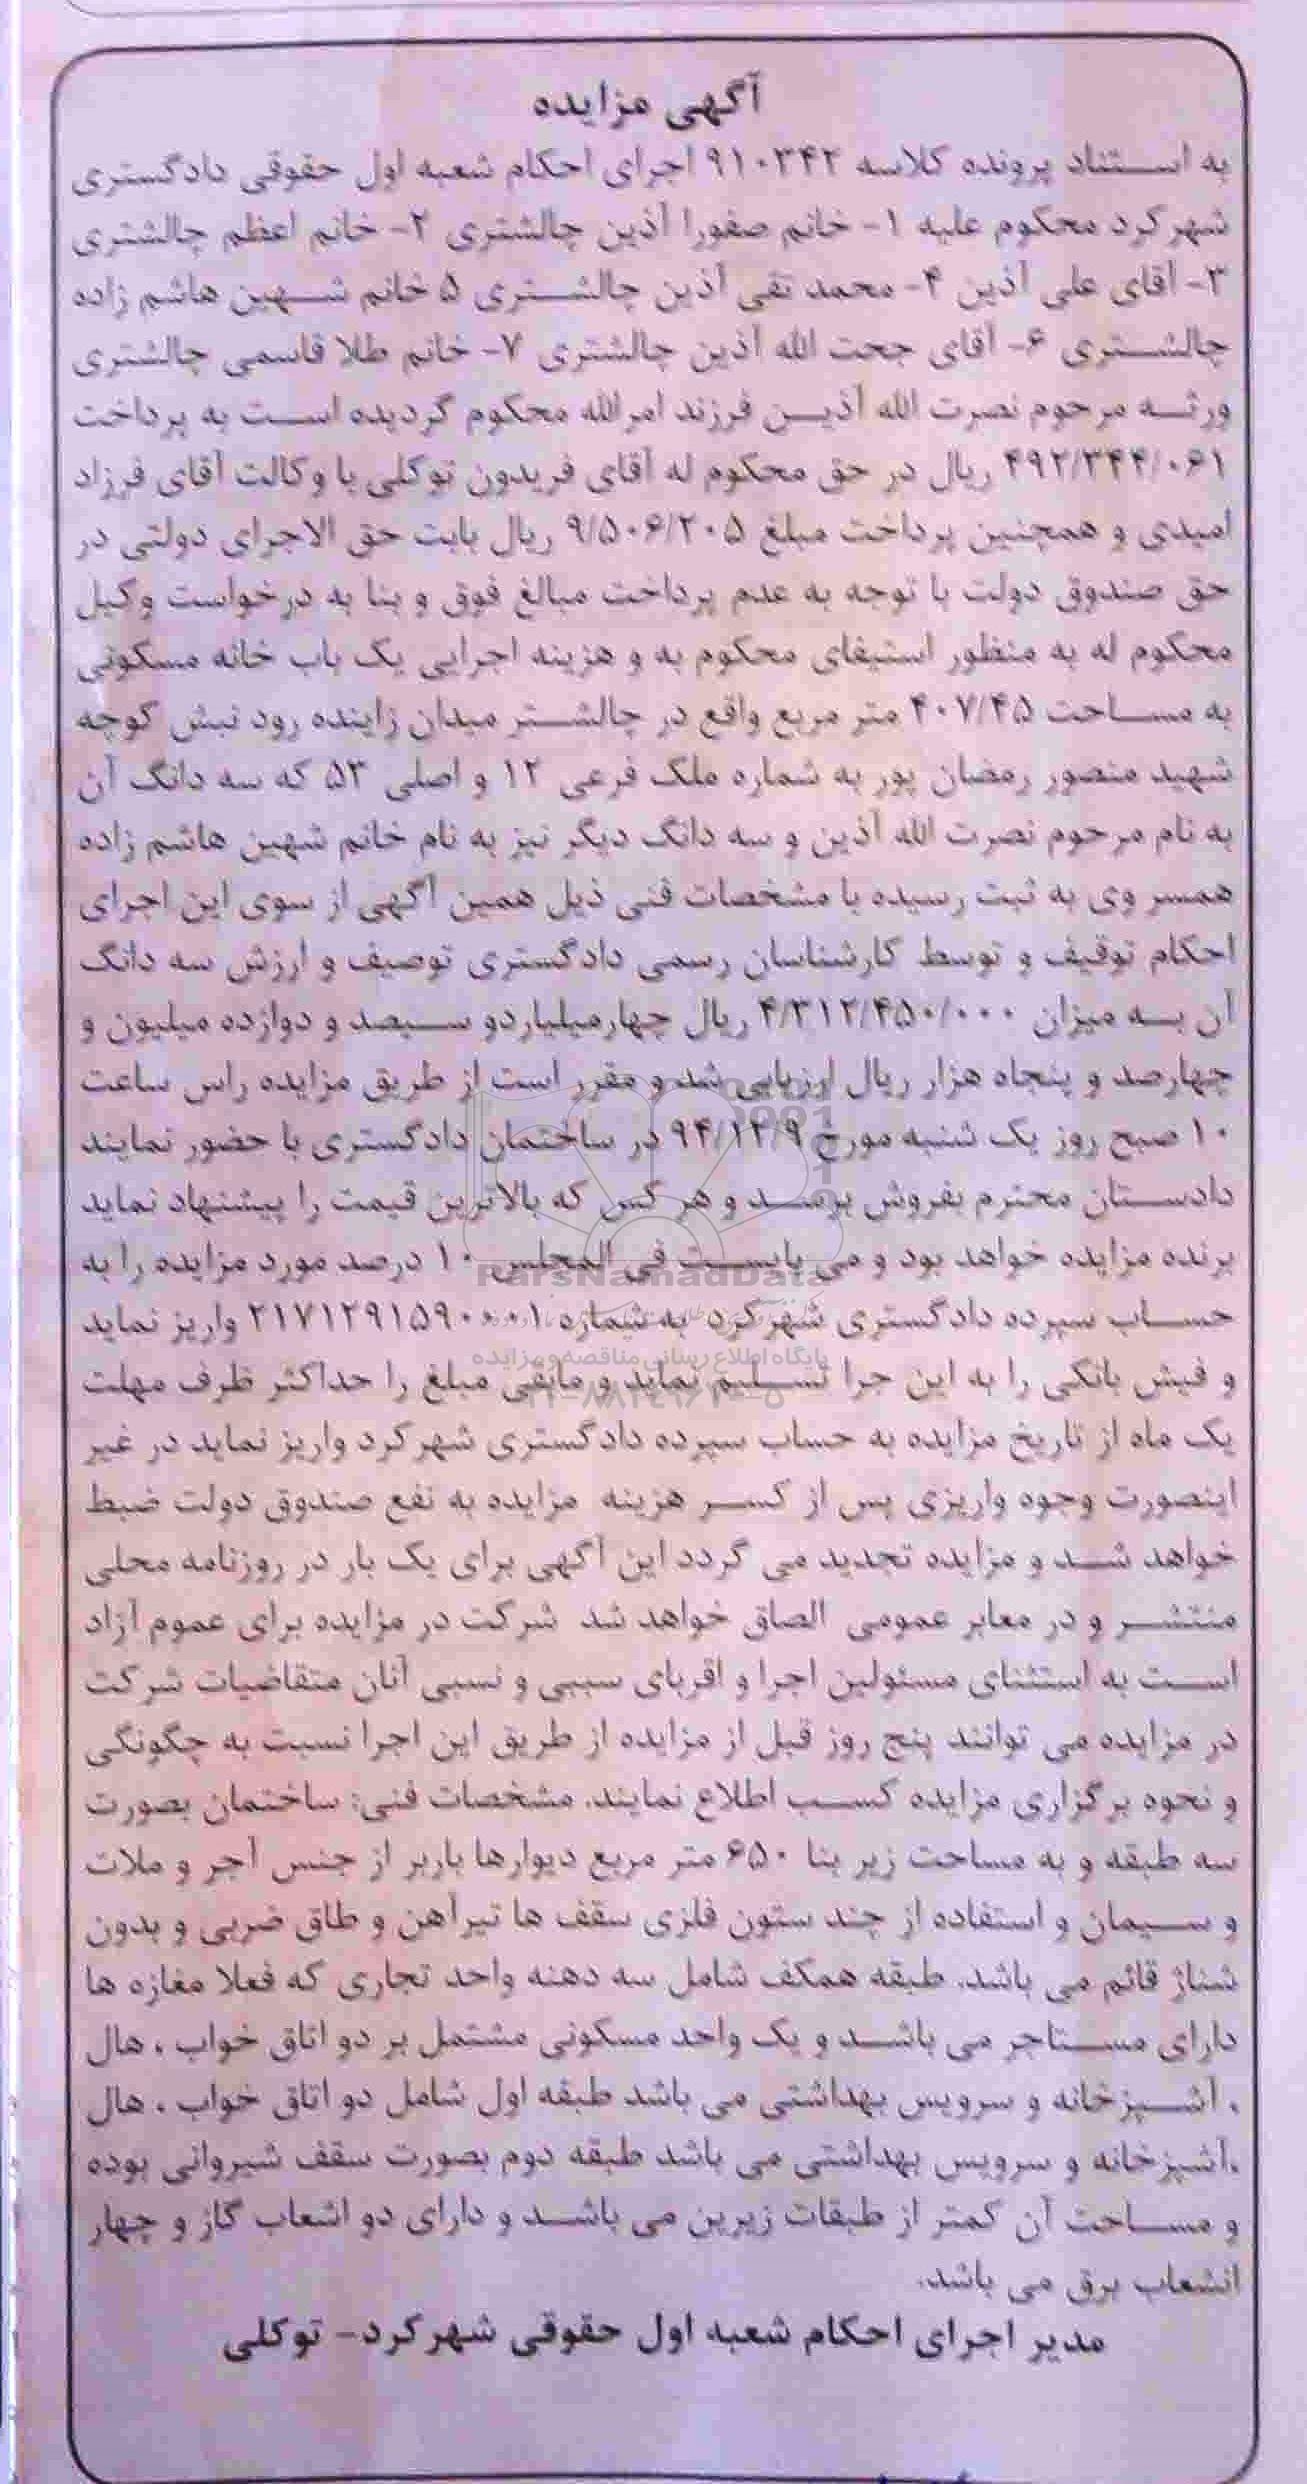 آگهی مزایده
به استناد پرونده کلاسه ۹۱۰۳۴۲ اجرای احکام شعبه اول حقوقی دادگستری
شهرکرد محکوم علیه ۱- خانم صفورا آذین چالشتری ۲- خانم اعظم چالشتری
۳- آقای علی آذین ۴- محمد تقی آذین چالشتری ۵ خانم شهین هاشم زاده
چالشتری ۶- آقای جحت الله آذین چالشتری ۷- خانم طلا قاسمی چالشتری
ورثه مرحوم نصرت الله آذین فرزند امرالله محکوم گردیده است به پرداخت
۴۹۲/۳۴۴/۰۶۱ ریال در حق محکوم له آقای فریدون توکلی با وکالت آقای فرزاد
امیدی و همچنین پرداخت مبلغ ۹/۵۰۶/۲۰۵ ریال بابت حق الاجرای دولتی در
حق صندوق دولت با توجه به عدم پرداخت مبالغ فوق و بنا به درخواست وکیل
محکوم له به منظور استیفای محکوم به و هزینه اجرایی یک باب خانه مسکونی
به مساحت ۴۰۷/۴۵ متر مربع واقع در چالشتر میدان زاینده رود نبش کوچه
شهید منصور رمضان پور به شماره ملک فرعی ۱۲ و اصلی ۵۳ که سه دانگ آن
به نام مرحوم نصرت الله آذین و سه دانگ دیگر نیز به نام خانم شهین هاشم زاده
همسر وی به ثبت رسیده با مشخصات فنی ذیل همین آگهی از سوی این اجرای
احکام توقیف و توسط کارشناسان رسمی دادگستری توصیف و ارزش سه دانگ
آن به میزان ۴/۳۱۲/۴۵۰/۰۰۰ ریال چهارمیلیاردو سیصد و دوازده میلیون و
چهارصد و پنجاه هزار ریال ارزیابی شد و مقرر است از طریق مزایده راس ساعت
۱۰ صبح روز یک شنبه مورخ ۹۴/۱۲/۹ در ساختمان دادگستری با حضور نمایند
دادستان محترم بفروش برسد و هر کس که بالاترین قیمت را پیشنهاد نماید
برنده مزایده خواهد بود و می بایست فی المجلس ۱۰ درصد مورد مزایده را به
ParsNamadData
حساب سپرده دادگستری شهرکرد به شماره ۲۱۷۱۲۹۱۵۹۰۰۰۱ واریز نماید
پایگاه اطلاع رسانی مناقصه و مزایده
و فیش بانکی را به این جرا تسلیم نماید و مابقی مبلغ را حداکثر ظرف مهلت
یک ماه از تاریخ مزایده به حساب سپرده دادگستری شهرکرد واریز نماید در غیر
اینصورت وجوه واریزی پس از کسر هزینه مزایده به نفع صندوق دولت ضبط
خواهد شد و مزایده تجدید می گردد این آگهی برای یک بار در روزنامه محلی
منتشر و در معابر عمومی الصاق خواهد شد شرکت در مزایده برای عموم آزاد
است به استثنای مسئولین اجرا و اقربای سببی و نسبی آنان متقاضیات شرکت
در مزایده می توانند پنج روز قبل از مزایده از طریق این اجرا نسبت به چگونگی
و نحوه برگزاری مزایده کسب اطلاع نمایند. مشخصات فنی: ساختمان بصورت
سه طبقه و به مساحت زیر بنا ۶۵۰ متر مربع دیوارها باربر از جنس آجر و ملات
و سیمان و استفاده از چند ستون فلزی سقف ها تیرآهن و طاق ضربی و بدون
شناژ قائم می باشد. طبقه همکف شامل سه دهنه واحد تجاری که فعلا مغازه ها
دارای مستاجر می باشد و یک واحد مسکونی مشتمل بر دو اتاق خواب ، هال
، آشپزخانه و سرویس بهداشتی می باشد طبقه اول شامل دو اتاق خواب ، هال
،آشپزخانه و سرویس بهداشتی می باشد طبقه دوم بصورت سقف شیروانی بوده
و مساحت آن کمتر از طبقات زیرین می باشد و دارای دو اشعاب گاز و چهار
انشعاب برق می باشد.
مدیر اجرای احکام شعبه اول حقوقی شهرکرد- توکلی